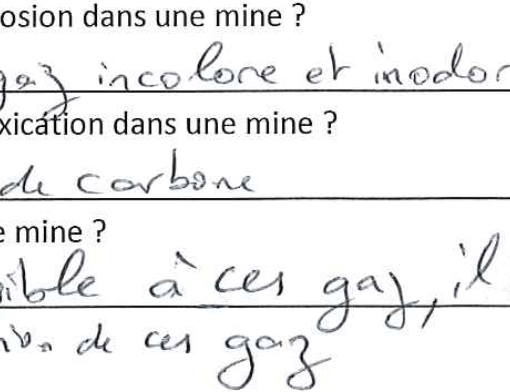 osion dans une mine ?
gaz incolore et inodor
xication dans une mine ?
de carbone
e mine ?
ible à ces gaz, il
de ces gaz